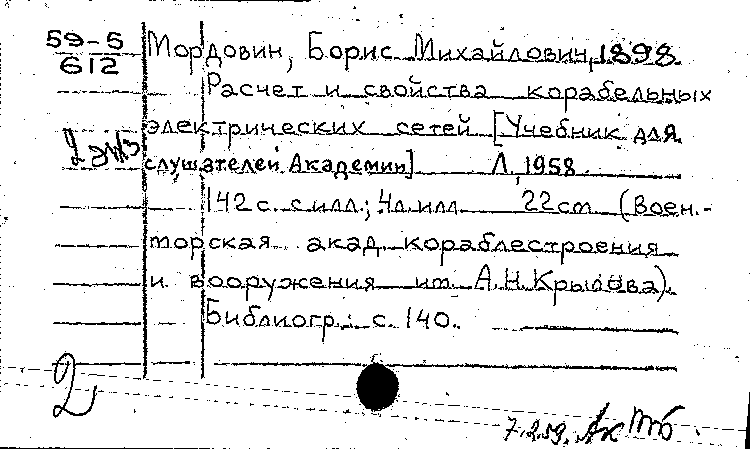 59-5
612
Мордовин, Борис Михайлович, 1898
Расчет и свойства корабельных
электрических сетей [Учебник для
2 экз
слушателей Академии] Л, 1958
142 с. с илл.; 4л илл 22cm (Воен.-
морская акад кораблестроения
и вооружения им. А.Н. Крылова).
Библиогр.: с. 140.
2
7.2.59.